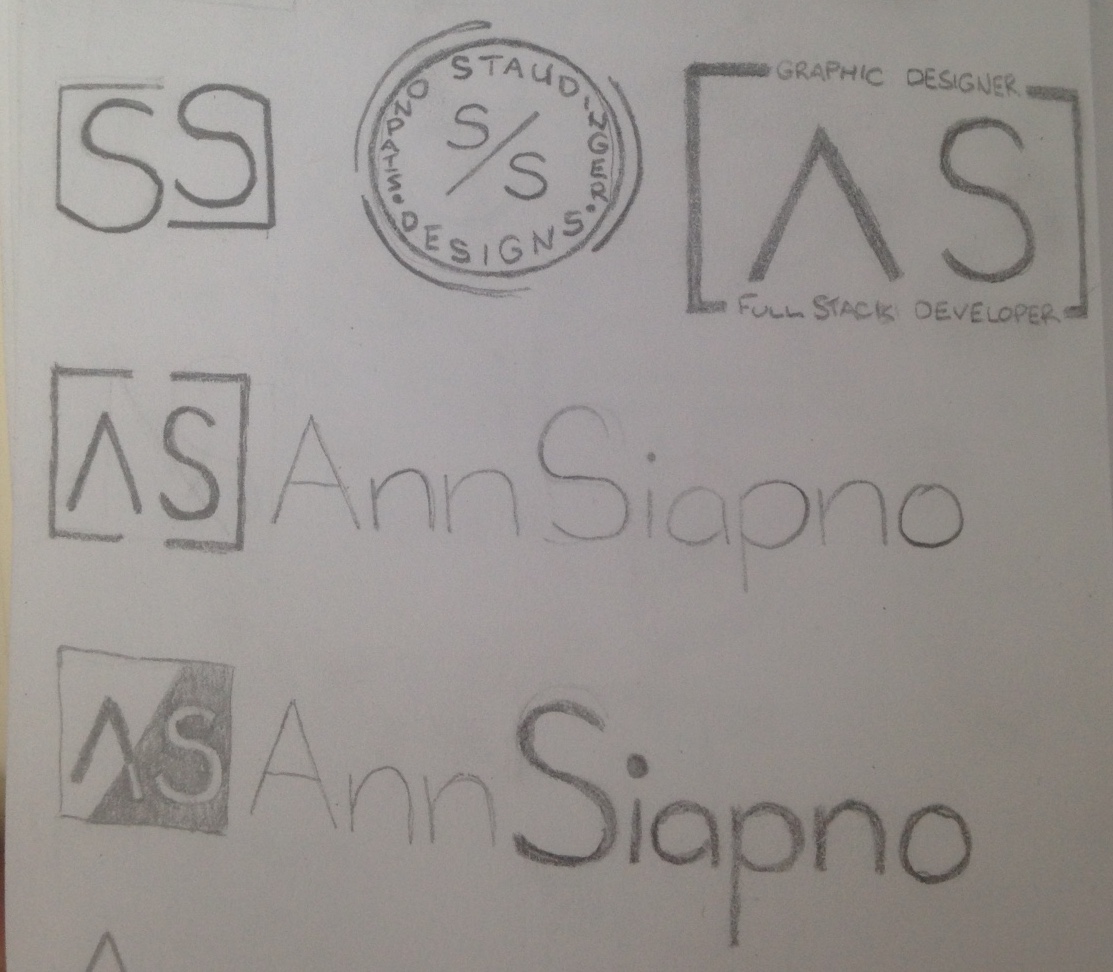 SS
SIAPNO STAUDINGER • DESIGNS •
S/S
GRAPHIC DESIGNER
ΛS
FULL STACK DEVELOPER
ΛS Ann Siapno
ΛS Ann Siapno